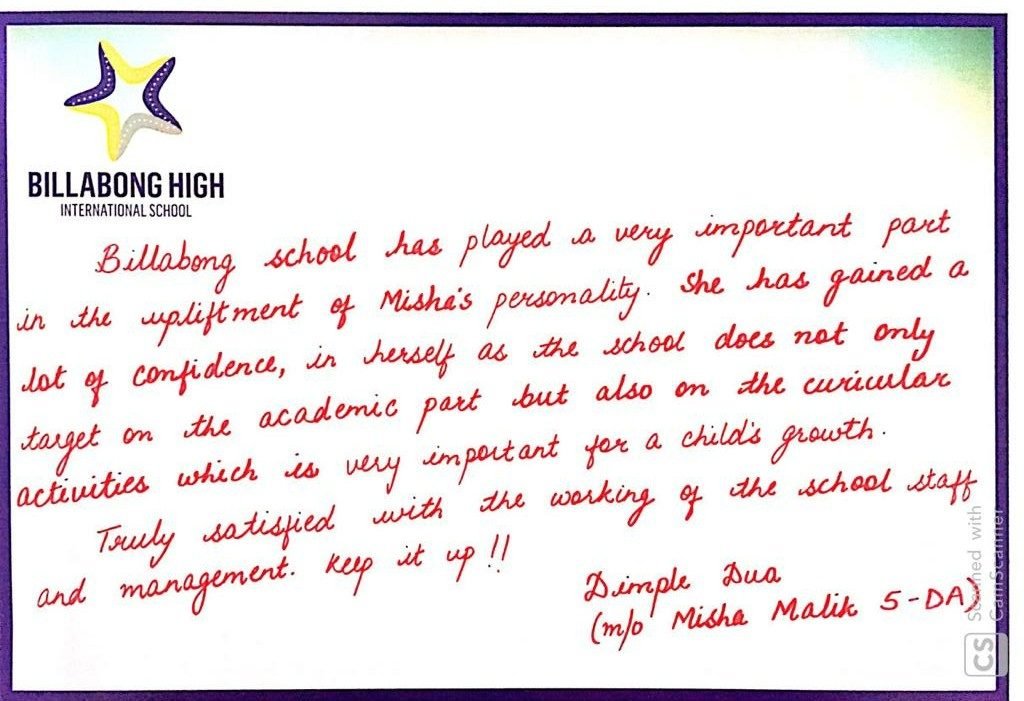 BILLABONG HIGH
INTERNATIONAL SCHOOL
Billabong school has played a very important part
in the upliftment of Misha's personality. She has gained a
lot of confidence, in herself as the school does not only
target on the academic part but also on the curicular
activities which is very important for a child's growth.
Truly satisfied with the working of the school staff
and management. Keep it up !!
Dimple Dua
(m/o Misha Malik 5-DA)
CS Scanned with
CamScanner